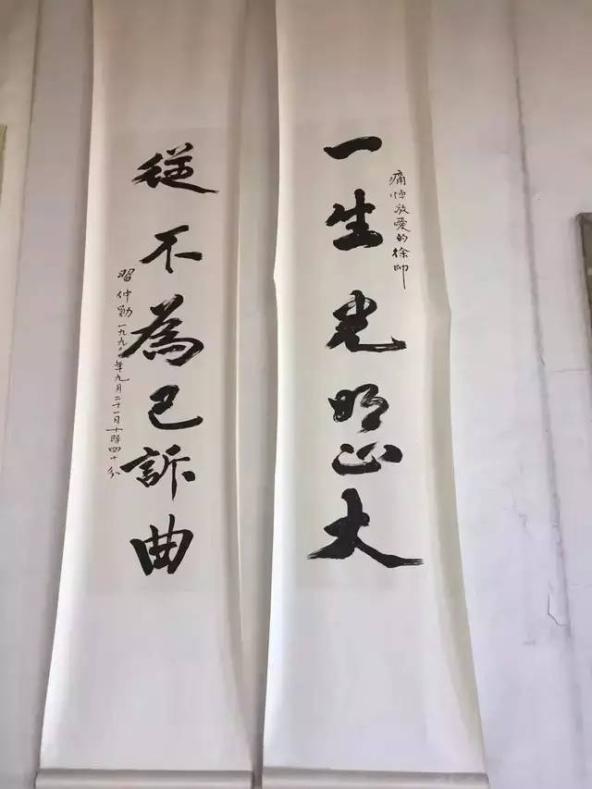 痛悼敬愛的徐帅
一生光明正大
從不為己訴曲
習仲勛一九九〇年九月二十一日十時四十分